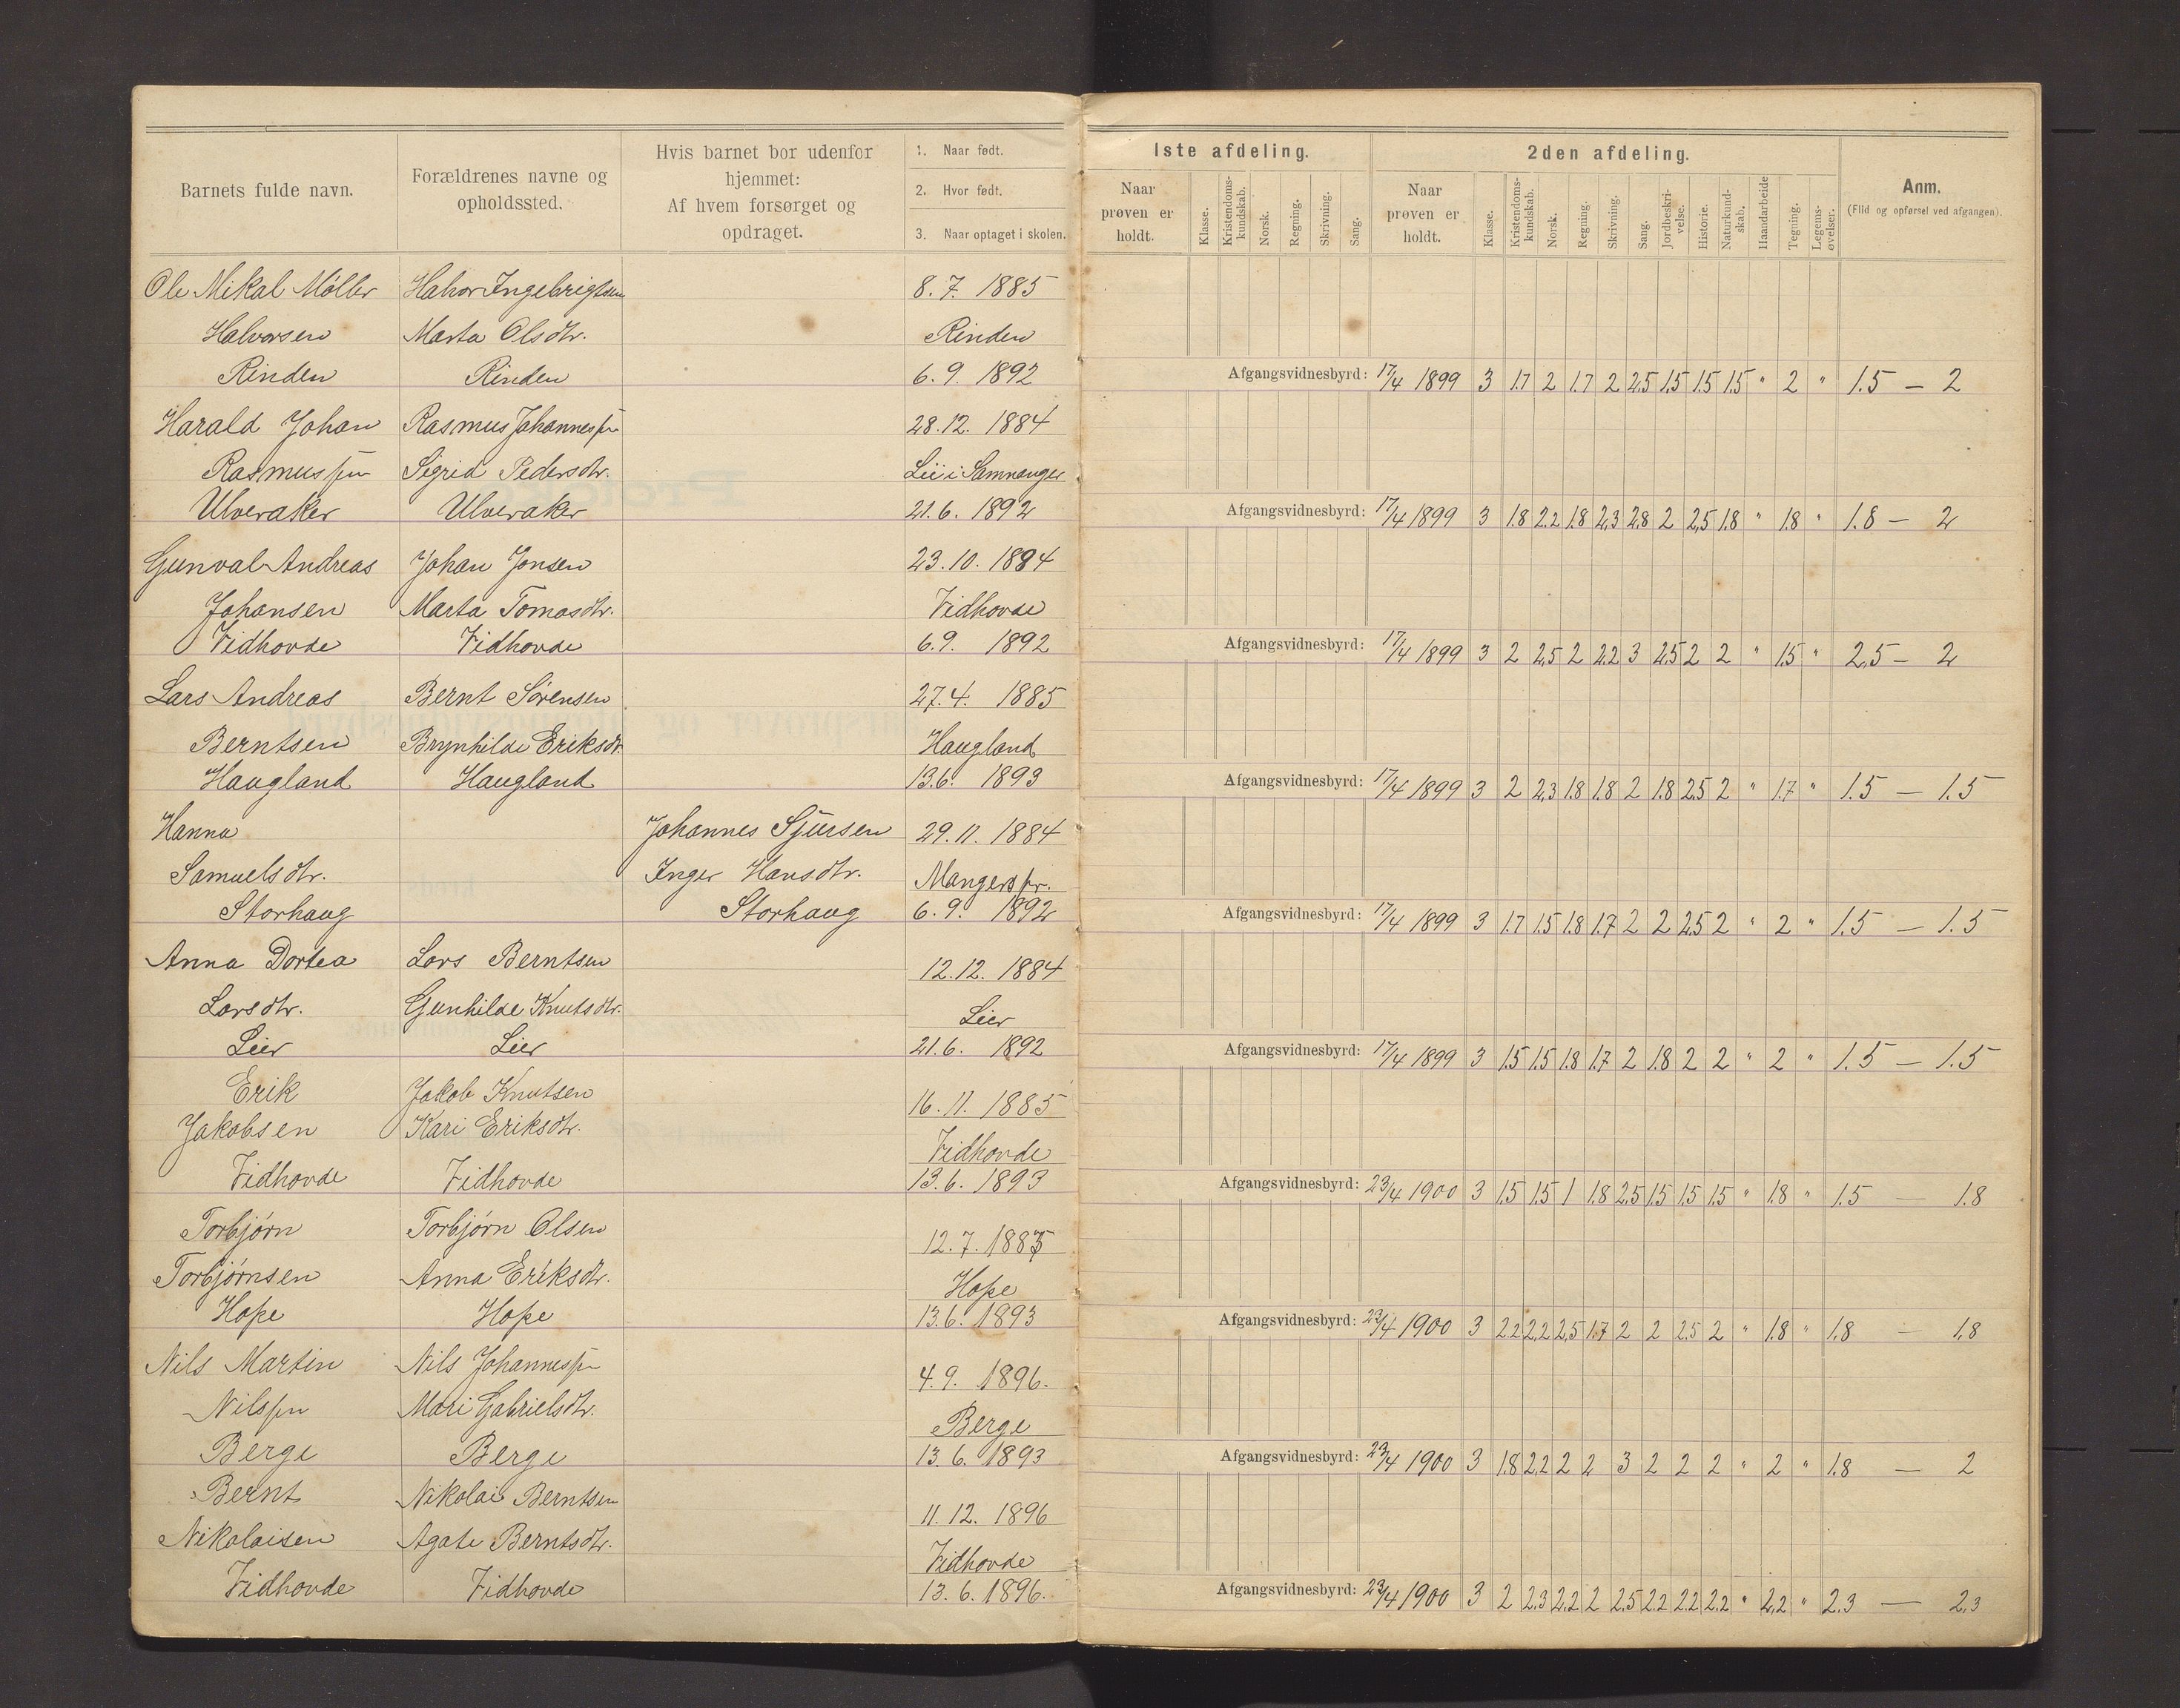 Barnets fulde navn.
Forældrenes navne og opholdssted.
Hvis barnet bor udenfor hjemmet:
Af hvem forsørget og opdraget.
1. Naar født.
2. Hvor født.
3. Naar optaget i skolen.
1ste afdeling.
Naar prøven er holdt.
Klasse. Kristendoms-kundskab. Norsk. Regning. Skrivning. Sang.
2den afdeling.
Naar prøven er holdt.
Klasse. Kristendoms-kundskab. Norsk. Regning. Skrivning. Sang. Jordbeskri-velse. Historie. Naturkund-skab. Haandarbeide Tegning. Legems-øvelser.
Anm.
(Flid og opførsel ved afgangen).
Ole Mikal Møller Halvor Ingebrigtsen 8. 7. 1885
Halvorsen Marta Olsdtr. Rinden
Rinden Rinden 6. 9. 1892 Afgangsvidnesbyrd: 17/4 1899 3 1.7 2 1.7 2 2.5 1.5 1.5 1.5 " 2 " 1.5 — 2
Harald Johan Rasmus Johannessen 28. 12. 1884
Rasmussen Sigrid Pedersdtr. Lii i Samnanger
Ulveraker Ulveraker 21. 6. 1892 Afgangsvidnesbyrd: 17/4 1899 3 1.8 2.2 1.8 2.3 2.8 2 2.5 1.8 " 1.8 " 1.8 — 2
Gunval Andreas Johan Jonsen 23. 10. 1884
Johansen Marta Tomasdtr. Vidhovde
Vidhovde Vidhovde 6. 9. 1892 Afgangsvidnesbyrd: 17/4 1899 3 2 2.5 2 2.2 3 2.5 2 2 " 1.5 " 2.5 — 2
Lars Andreas Bernt Sørensen 27. 4. 1885
Berntsen Brynhilde Eriksdtr. Haugland
Haugland Haugland 13. 6. 1893 Afgangsvidnesbyrd: 17/4 1899 3 2 2.3 1.8 1.8 2 1.8 2.5 2 " 1.7 " 1.5 — 1.5
Hanna Johannes Sjursen 29. 11. 1884
Samuelsdtr. Inger Hansdtr. Mangers pr.
Storhaug Storhaug 6. 9. 1892 Afgangsvidnesbyrd: 17/4 1899 3 1.7 1.5 1.8 1.7 2 2 2.5 2 " 2 " 1.5 — 1.5
Anna Dortea Lars Berntsen 12. 12. 1884
Larsdtr. Gunhilde Knutsdtr. Lier
Lier Lier 21. 6. 1892 Afgangsvidnesbyrd: 17/4 1899 3 1.5 1.5 1.8 1.7 2 1.8 2 2 " 2 " 1.5 — 1.5
Erik Jakob Knutsen 16. 11. 1885
Jakobsen Kari Eriksdtr. Vidhovde
Vidhovde Vidhovde 13. 6. 1893 Afgangsvidnesbyrd: 23/4 1900 3 1.5 1.5 1 1.8 2.5 1.5 1.5 1.5 " 1.8 " 1.5 — 1.8
Torbjørn Torbjørn Olsen 12. 7. 1885
Torbjørnsen Anna Eriksdtr. Hope
Hope Hope 13. 6. 1893 Afgangsvidnesbyrd: 23/4 1900 3 2.2 2.2 2.5 1.7 2 2 2.5 2 " 1.8 " 1.8 — 1.8
Nils Martin Nils Johannessen 4. 9. 1896.
Nilssen Mari Gabrielsdtr. Berge
Berge Berge 13. 6. 1893 Afgangsvidnesbyrd: 23/4 1900 3 1.8 2.2 2 2 3 2 2 2 " 2 " 1.8 — 2
Bernt Nikolai Berntsen 11. 12. 1896
Nikolaisen Agate Berntsdtr. Vidhovde
Vidhovde Vidhovde 13. 6. 1896. Afgangsvidnesbyrd: 23/4 1900 3 2 2.3 2.2 2 2.5 2.2 2.2 2.2 " 2.2 " 2.3 — 2.3